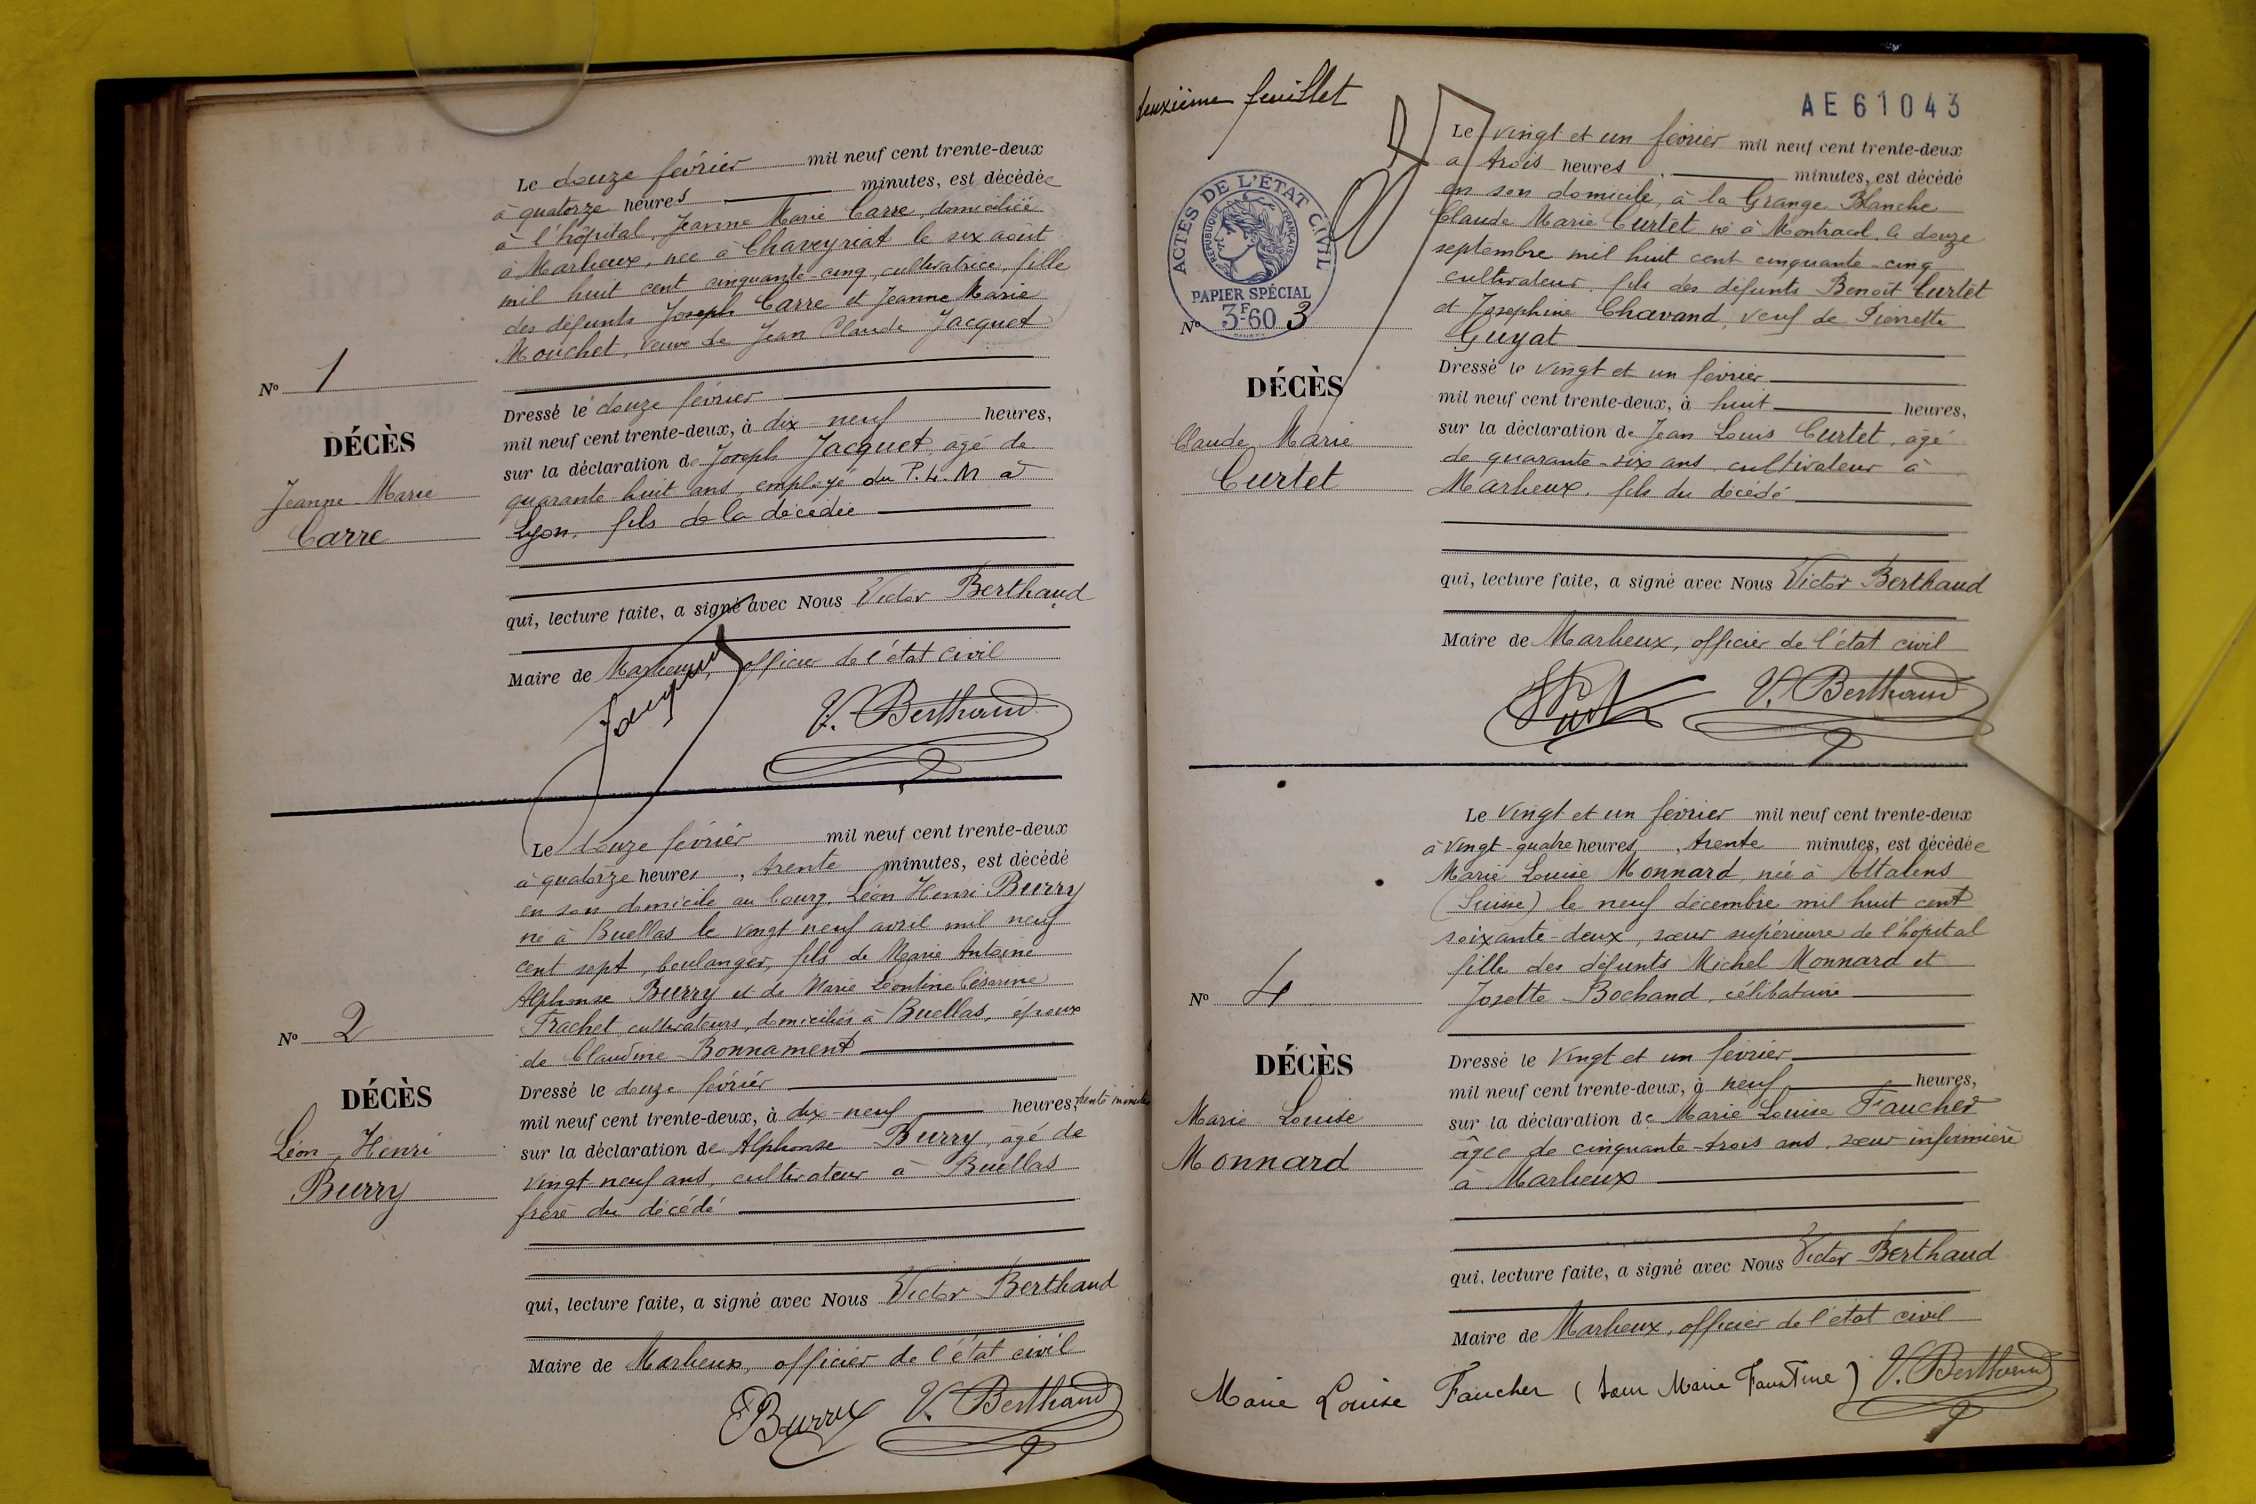 Le douze février mil neuf cent trente-deux
à quatorze heures minutes, est décédée
à l'hôpital, Jeanne Marie Carre, domiciliée
à Marlieux, née à Chaveyriat le six août
mil huit cent cinquante-cinq, cultivatrice, fille
des défunts Joseph Carre et Jeanne Marie
Mouchet, veuve de Jean Claude Jacquet
No 1
DÉCÈS
Jeanne Marie
Carre
Dressé le douze février
mil neuf cent trente-deux, à dix-neuf heures,
sur la déclaration de Joseph Jacquet, âgé de
quarante-huit ans, employé du P.L.M à
Lyon, fils de la décédée
qui, lecture faite, a signé avec Nous Victor Berthaud
Maire de Marlieux, officier de l'état civil
Jacquet
V. Berthaud
Le douze février mil neuf cent trente-deux
à quatorze heures, trente minutes, est décédé
en son domicile au bourg, Léon Henri Burry
né à Buellas le vingt-neuf avril mil neuf
cent sept, boulanger, fils de Marie Antoine
Alphonse Burry et de Marie Léontine Césarine
Frachet, cultivateurs, domiciliés à Buellas, époux
de Claudine Bonnament
No 2
DÉCÈS
Léon Henri
Burry
Dressé le douze février
mil neuf cent trente-deux, à dix-neuf heures, trente minutes
sur la déclaration de Alphonse Burry, âgé de
vingt-neuf ans, cultivateur à Buellas
frère du décédé
qui, lecture faite, a signé avec Nous Victor Berthaud
Maire de Marlieux, officier de l'état civil
Burry V. Berthaud
deuxième feuillet
AE61043
ACTES DE L'ÉTAT CIVIL
RÉPUBLIQUE FRANÇAISE
PAPIER SPÉCIAL
3F60
Le vingt et un février mil neuf cent trente-deux
à trois heures minutes, est décédé
en son domicile, à la Grange Blanche
Claude Marie Curtet né à Montracol, le douze
septembre mil huit cent cinquante-cinq
cultivateur, fils des défunts Benoît Curtet
et Josephine Chavand, veuf de Pierrette
Guyat
No 3
DÉCÈS
Claude Marie
Curtet
Dressé le vingt et un février
mil neuf cent trente-deux, à huit heures,
sur la déclaration de Jean Louis Curtet, âgé
de quarante-six ans, cultivateur à
Marlieux, fils du décédé
qui, lecture faite, a signé avec Nous Victor Berthaud
Maire de Marlieux, officier de l'état civil
V. Berthaud
Le vingt et un février mil neuf cent trente-deux
à vingt-quatre heures, trente minutes, est décédée
Marie Louise Monnard, née à Attalens
(Suisse) le neuf décembre mil huit cent
soixante-deux, sœur supérieure de l'hôpital
fille des défunts Michel Monnard et
Josette Bochand, célibataire
No 4
DÉCÈS
Marie Louise
Monnard
Dressé le vingt et un février
mil neuf cent trente-deux, à neuf heures,
sur la déclaration de Marie Louise Faucher
âgée de cinquante-trois ans, sœur infirmière
à Marlieux
qui, lecture faite, a signé avec Nous Victor Berthaud
Maire de Marlieux, officier de l'état civil
Marie Louise Faucher (sœur Marie Faustine) V. Berthaud